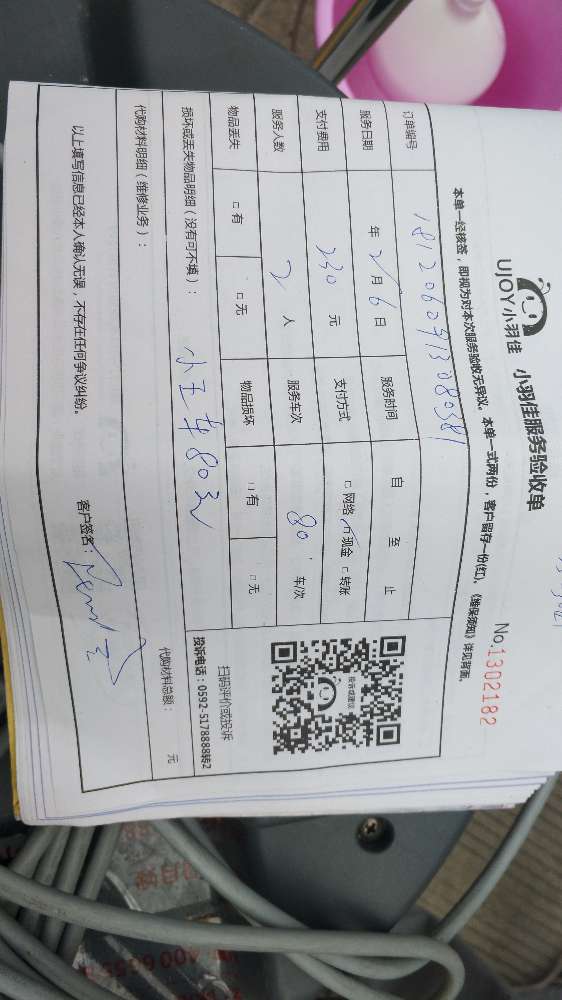 UJOY小羽佳 小羽佳服务验收单
No.1302182
本单一经核签,即视为对本次服务验收无异议。本单一式两份,客户留存一份(红)。《维保须知》详见背面。
订单编号 1812060913080581
服务日期 年 2月6日 服务时间 自 至 止
支付费用 230元 支付方式 □网络 □现金 □转账
服务人数 2人 服务车次 80 车/次
物品丢失 □有 □无 物品损坏 □有 □无
投诉或建议
扫码评价或投诉
投诉电话:0592-5178888转2
损坏或丢失物品明细(没有可不填): 小王车80元
代购材料明细(维修业务): 代购材料总额: 元
以上填写信息已经本人确认无误,不存在任何争议纠纷。 客户签名: